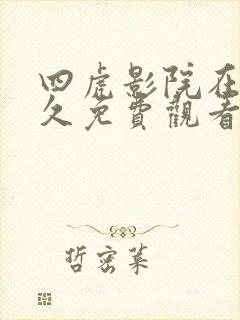 四虎影院在
久免費觀看
哲密菜